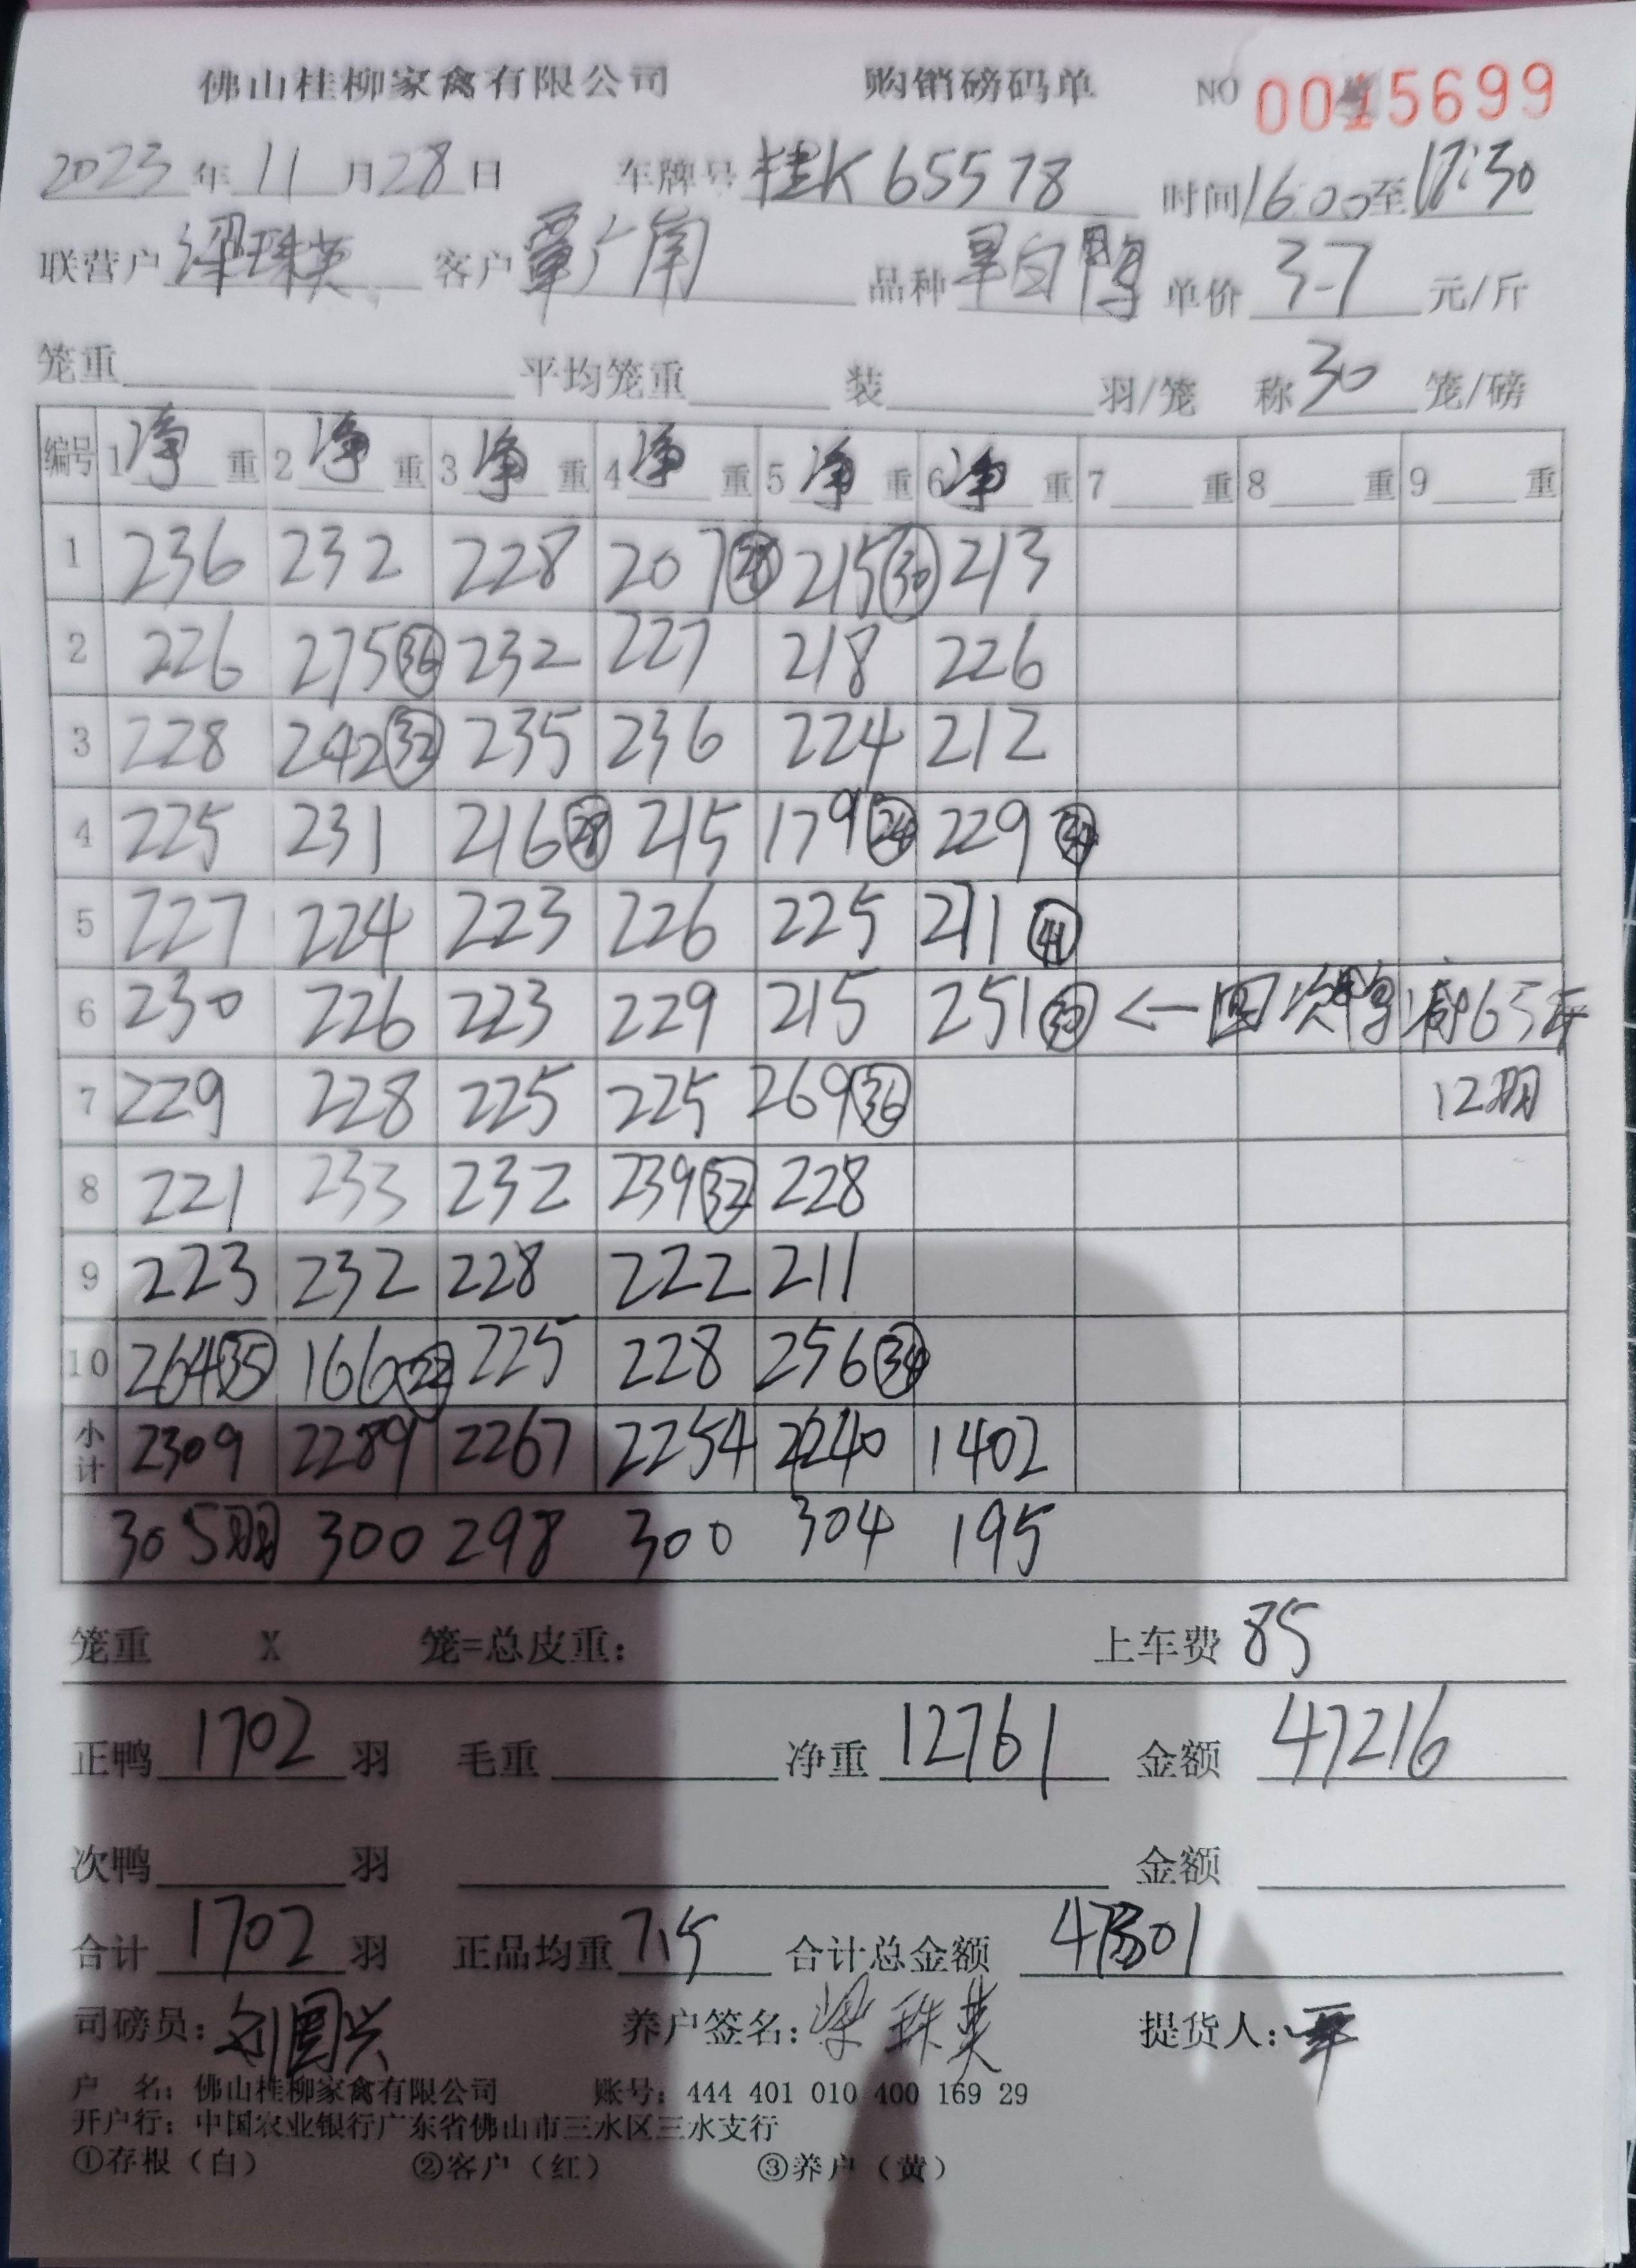 佛山桂柳家禽有限公司 购销磅码单 NO 0015699
2023年11月28日 车牌号 桂K65578 时间16:00至17:30
联营户 梁珠英 客户 覃广南 品种 旱白鸭 单价 3-7 元/斤
笼重 平均笼重 装 羽/笼 称 30 笼/磅
编号 1 净 重 2 净 重 3 净 重 4 净 重 5 净 重 6 净 重 7 重 8 重 9 重
1 236 232 228 207 28 215 30 213
2 226 275 36 232 227 218 226
3 228 242 32 235 236 224 212
4 225 231 216 28 215 179 24 229 34
5 227 224 223 226 225 211 41
6 230 226 223 229 215 251 30 ← 次鸭减65斤
7 229 228 225 225 269 36 12羽
8 221 233 232 239 32 228
9 223 232 228 222 211
10 264 35 166 22 225 228 256 34
小计 2309 2289 2267 2254 2240 1402
305羽 300 298 300 304 195
笼重 X 笼=总皮重: 上车费 85
正鸭 1702 羽 毛重 净重 12761 金额 47216
次鸭 羽 金额
合计 1702 羽 正品均重 7.5 合计总金额 47301
司磅员: 刘国兴 养户签名: 梁珠英 提货人:
户 名: 佛山桂柳家禽有限公司 账号: 444 401 010 400 169 29
开户行: 中国农业银行广东省佛山市三水区三水支行
①存根（白） ②客户（红） ③养户（黄）